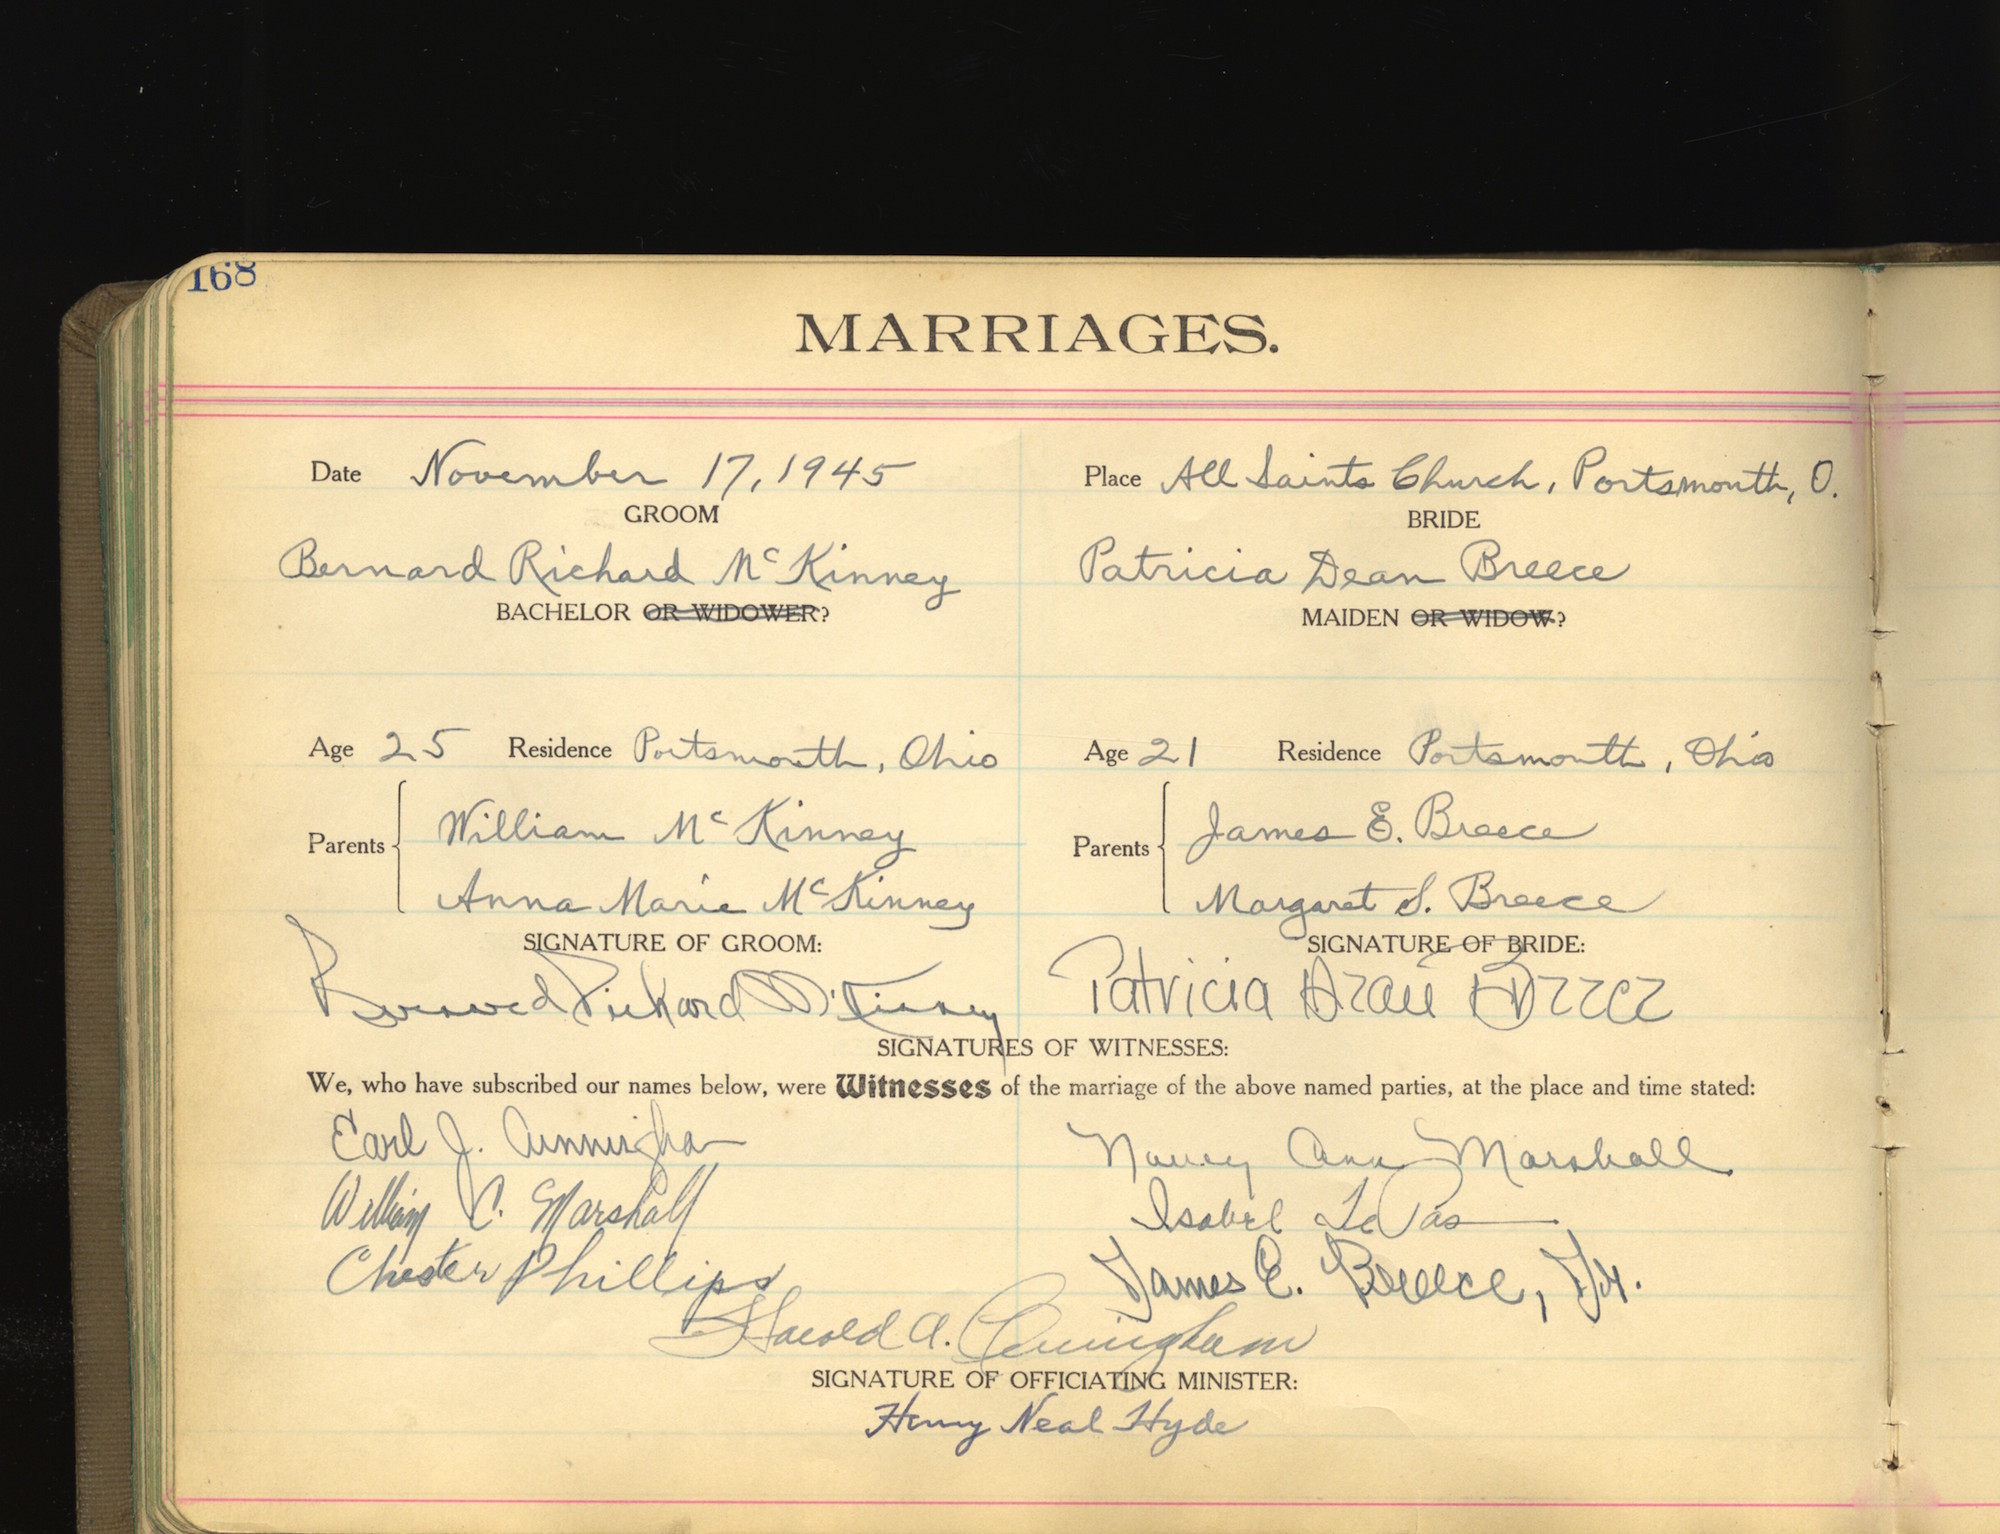 168
MARRIAGES.
Date November 17, 1945 Place All Saints Church, Portsmouth, O.
GROOM BRIDE
Bernard Richard McKinney Patricia Dean Breece
BACHELOR OR WIDOWER? MAIDEN OR WIDOW?
Age 25 Residence Portsmouth, Ohio Age 21 Residence Portsmouth, Ohio
Parents William McKinney Parents James E. Breece
Anna Marie McKinney Margaret S. Breece
SIGNATURE OF GROOM: SIGNATURE OF BRIDE:
Bernard Richard McKinney Patricia Dean Breece
SIGNATURES OF WITNESSES:
We, who have subscribed our names below, were Witnesses of the marriage of the above named parties, at the place and time stated:
Earl J. Cunningham Nancy Ann Marshall
William C. Marshall Isabel LePas
Chester Phillips James E. Breece, Jr.
Harold A. Cunningham
SIGNATURE OF OFFICIATING MINISTER:
Henry Neal Hyde